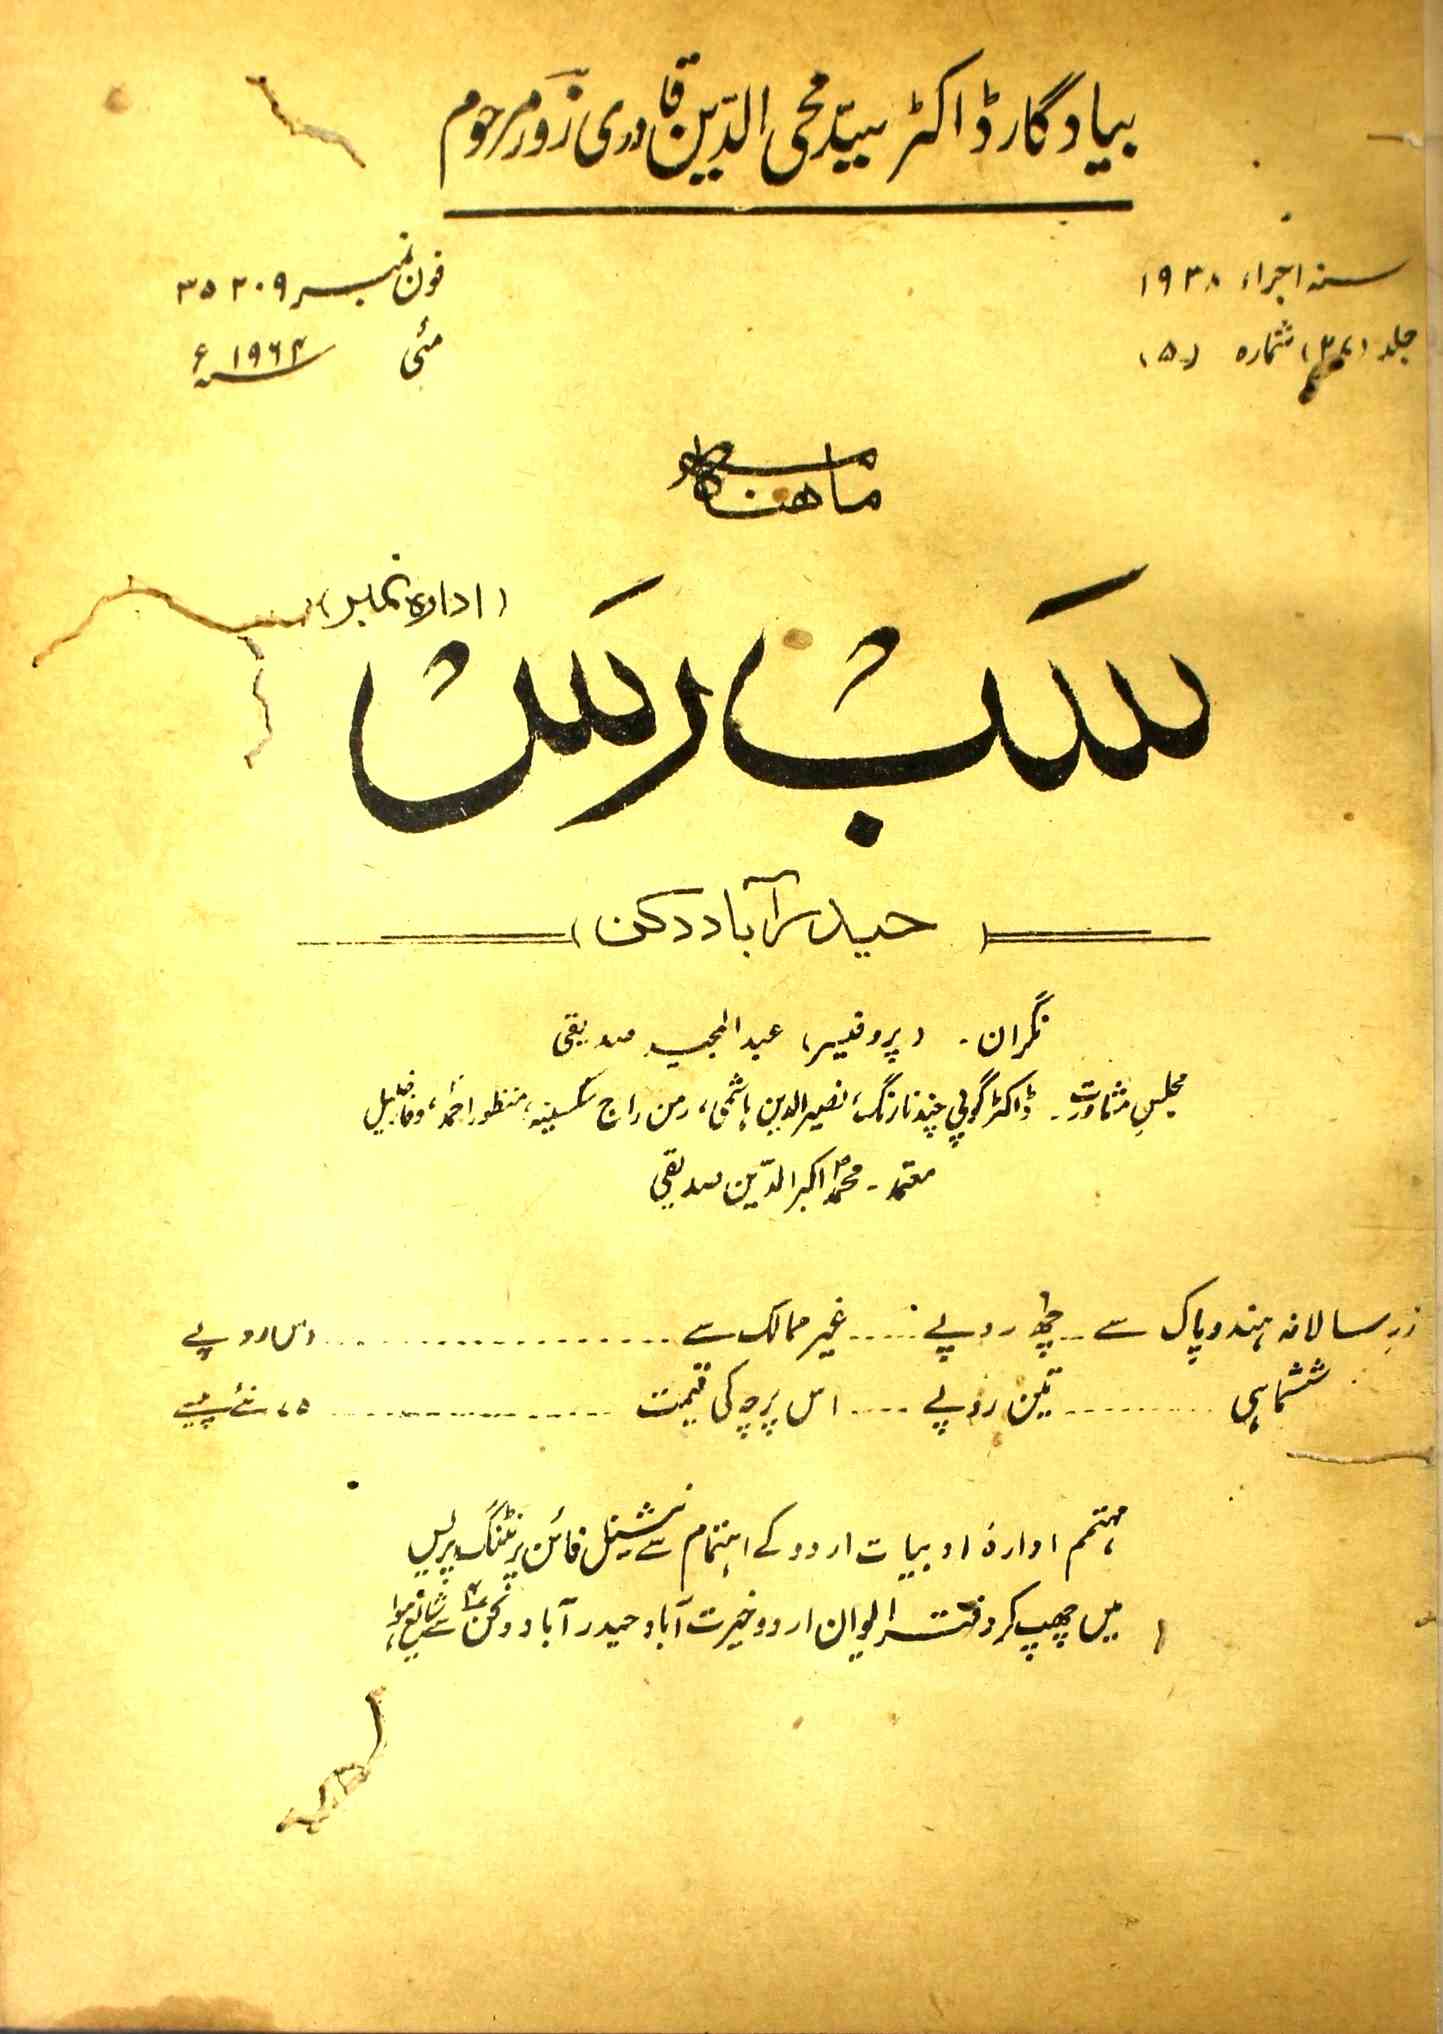 بیادگار ڈاکٹر سیّد محی الدّین قادری زورؔ مرحوم
سنہ اجراء ۱۹۳۸
فون نمبر ۳۵۲۰۹
جلد شمارہ (۵)
مئی ۱۹۶۴ء
ماهنامه
(ادارہ نمبر)
سَبْ رَسْ
(حیدرآباد دکن)
نگران ۔ (پروفیسر) عبدالمجید صدیقی
مجلس مشاورت ۔ ڈاکٹر گوپی چند نارنگ، نصیرالدین ہاشمی، رمن راج سکسینہ، منظور احمد، وقار خلیل
معتمد ۔ محمد اکبرالدّین صدیقی
زرِ سالانہ ہند و پاک سے ... چھ روپے ..... غیر ممالک سے ............ دس روپے
ششماہی .......... تین روپے .... اس پرچہ کی قیمت ............ ۷۵ نئے پیسے
مہتمم ادارۂ ادبیات اردو کے اہتمام سے نیشنل فائن پرنٹنگ پریس
میں چھپ کر دفتر ایوان اردو خیرت آباد حیدرآباد دکن ۴ سے شائع ہوا